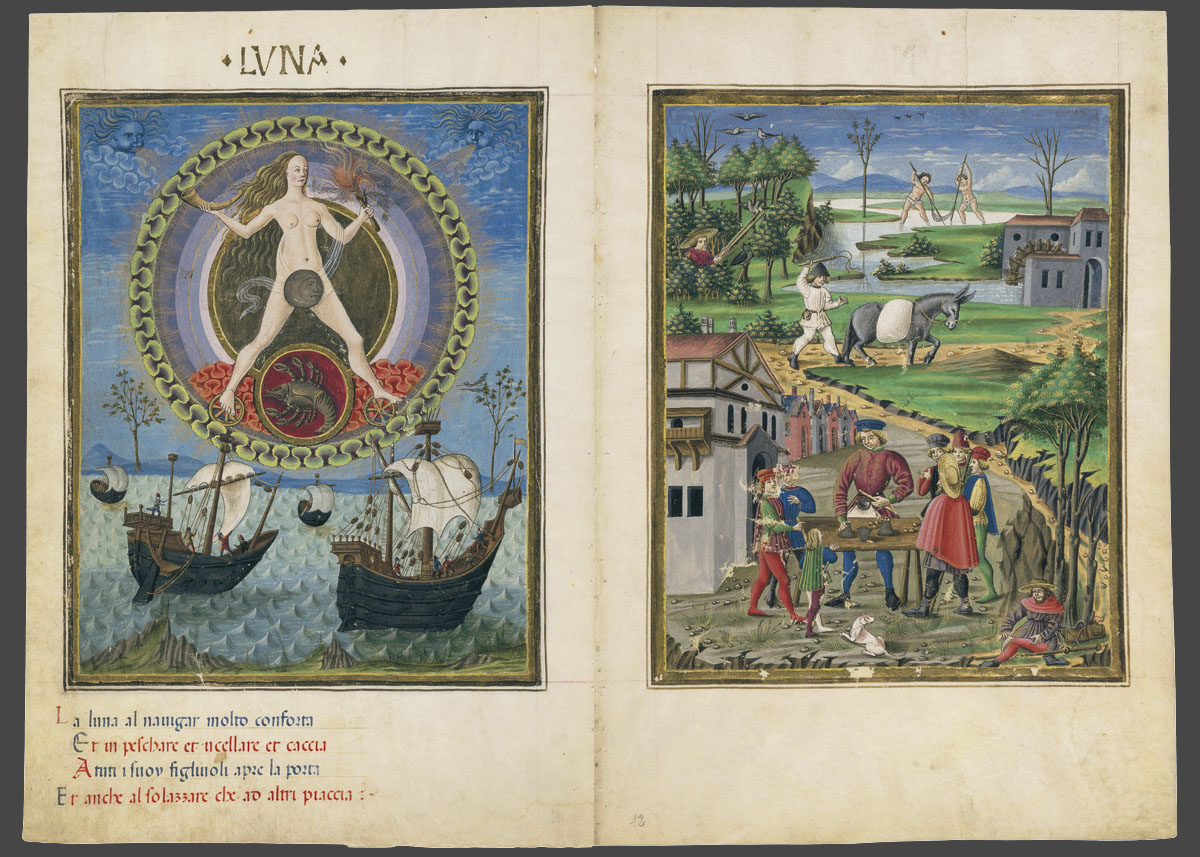 ·LVNA·
La luna al nauigar molto conforta
Et in peschare et ucellare et caccia
A tuti i suoy figliuoli apre la porta
Et anche al solazzare che ad altri piaccia :~
12